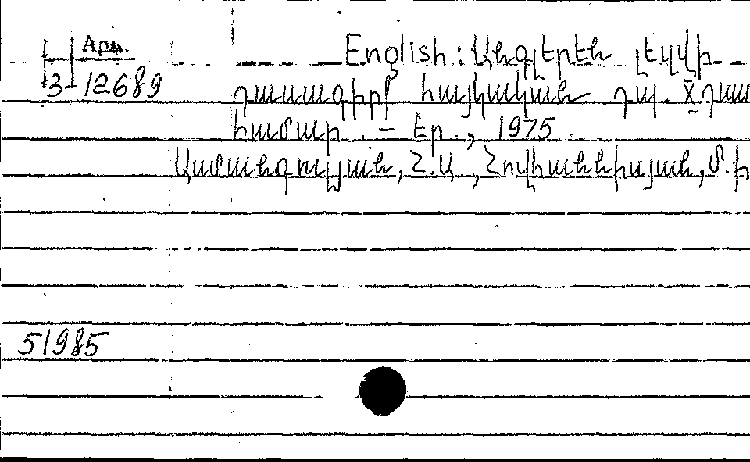 Арм.
3-12689
English: Անգլերեն լեզվի
դասագիրք հայկական դպ. X դաս
համար. - Եր., 1975
Ասմանգուլյան, Հ.Ա., Հովհաննիսյան, Մ.Ի
51985